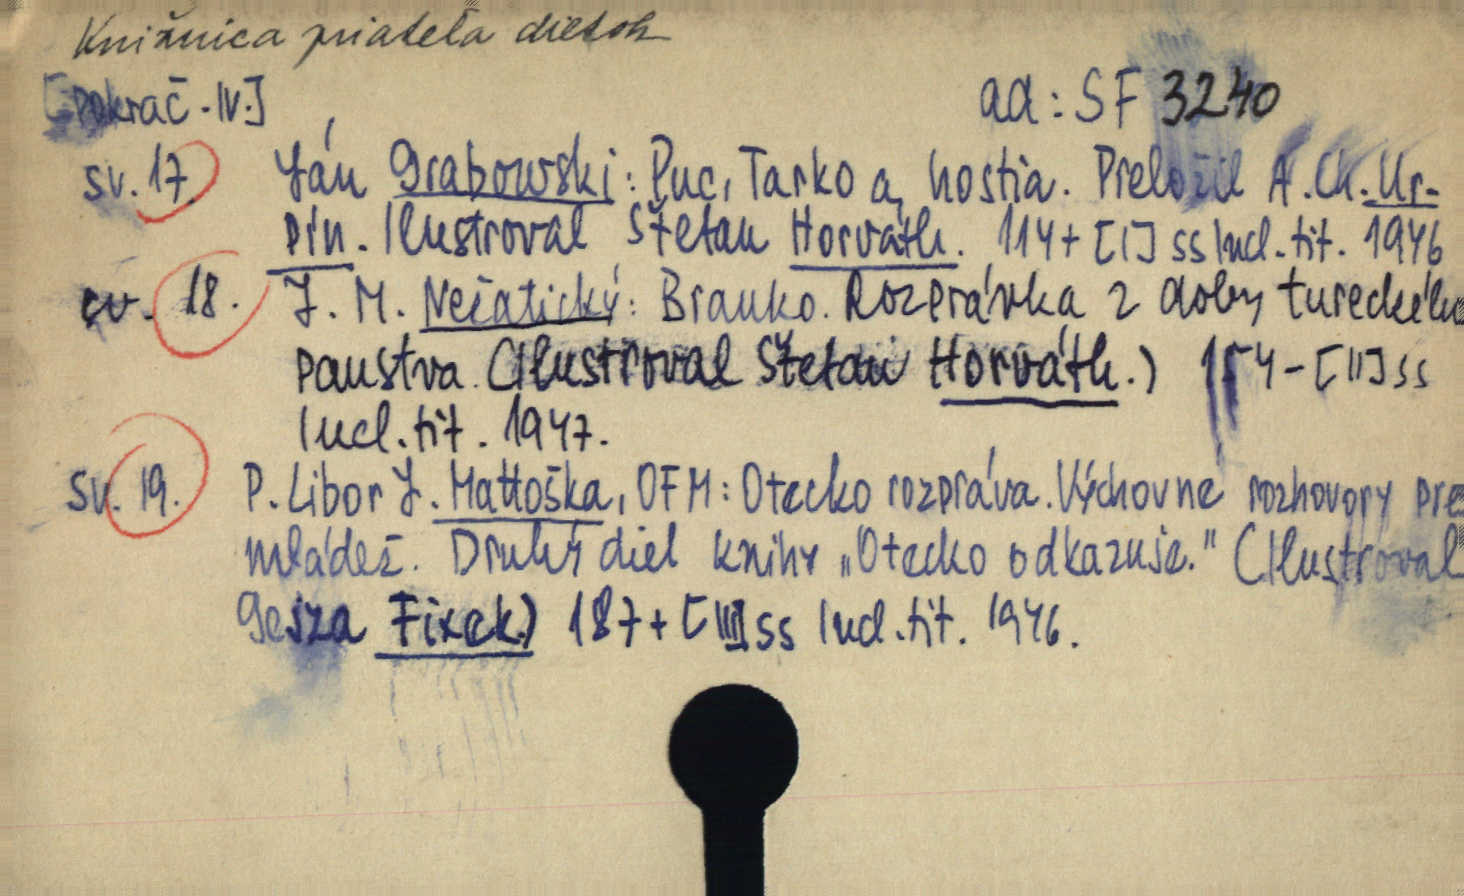 Knižnica priateľa dietok
[Pokrač. IV.] ad: SF 3240
sv. 17. Ján Grabowski: Puc, Tarko a hostia. Preložil A. Ch. Ur-
pín. Ilustroval Štefan Horváth. 114+[I] ss Incl. tit. 1946
sv. 18. J. M. Nečatický: Branko. Rozprávka z doby tureckého
panstva. (Ilustroval Štefan Horváth.) 154-[II] ss
Incl. tit. 1947.
Sv. 19. P. Libor J. Mattoška, OFM: Otecko rozpráva. Výchovné rozhovory pre
mládež. Druhý diel knihy „Otecko odkazuje." (Ilustroval
Gejza Fixek.) 187+[III] ss Incl. tit. 1946.